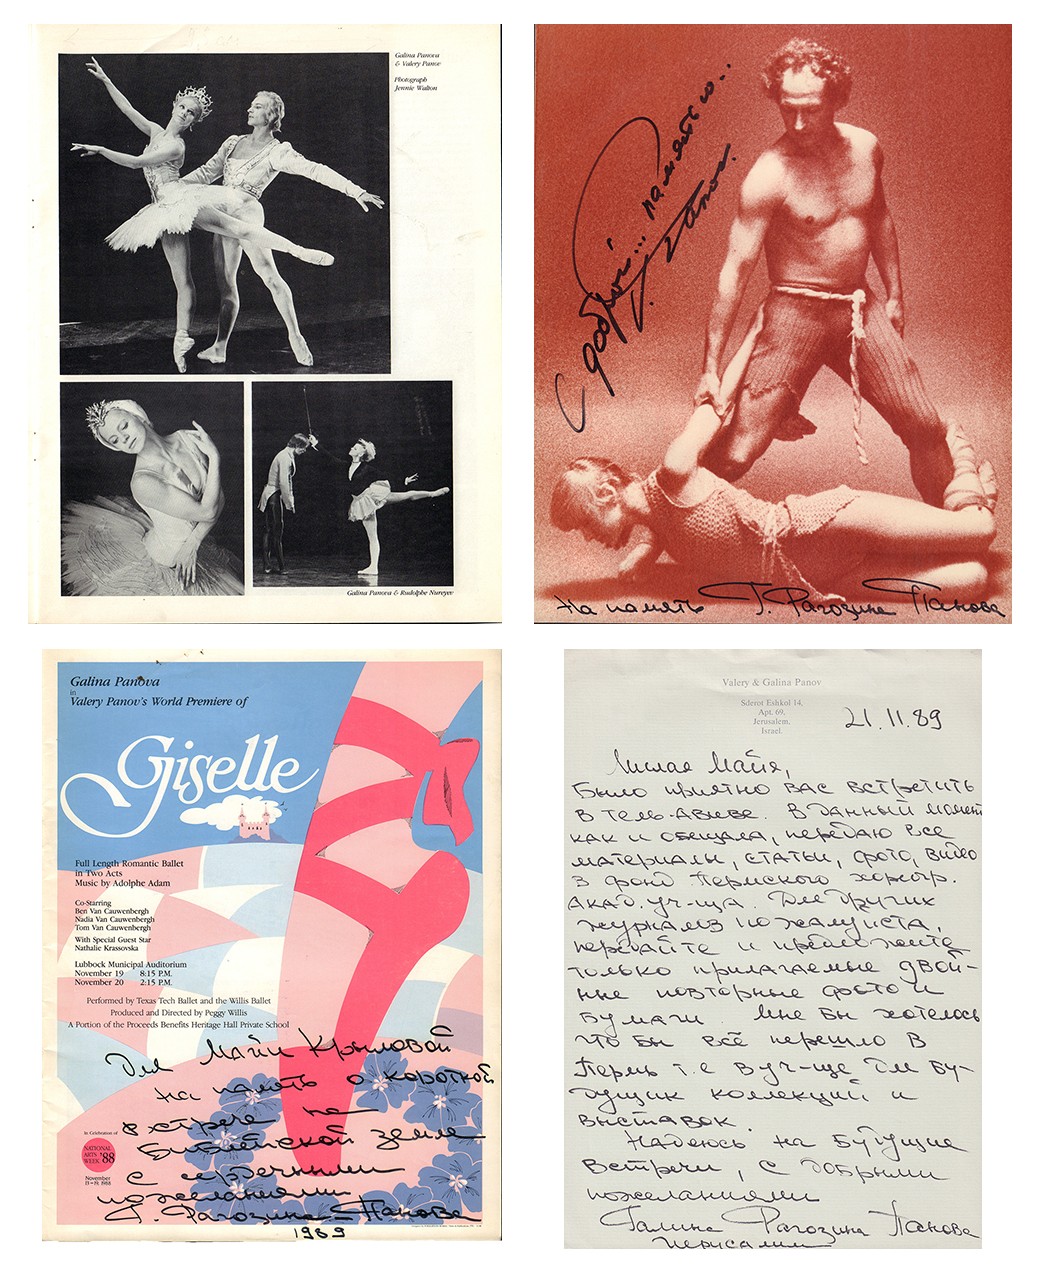 Galina Panova
& Valery Panov
Photograph
Jennie Walton
Galina Panova & Rudolphe Nureyev
С доброй... памятью...
В. Панов.
На память Г. Рагозина Панова
Galina Panova
in
Valery Panov's World Premiere of
Giselle
Full Length Romantic Ballet
in Two Acts
Music by Adolphe Adam
Co-Starring
Ben Van Cauwenbergh
Nadia Van Cauwenbergh
Tom Van Cauwenbergh
With Special Guest Star
Nathalie Krassovska
Lubbock Municipal Auditorium
November 19 8:15 P.M.
November 20 2:15 P.M.
Performed by Texas Tech Ballet and the Willis Ballet
Produced and Directed by Peggy Willis
A Portion of the Proceeds Benefits Heritage Hall Private School
Для Майи Крыловой
на память о короткой
встрече на
Библейской земле
с сердечными
пожеланиями
Г. Рагозина-Панова
1989
In Celebration of
NATIONAL
ARTS
WEEK '88
November
13-19, 1988
Valery & Galina Panov
Sderot Eshkol 14,
Apt. 69,
Jerusalem,
Israel.
21.11.89
Милая Майя,
Было приятно вас встретить
в Тель-Авиве. В данный момент
как и обещала, передаю все
материалы, статьи, фото, видео
в фонд Пермского хореогр.
Акад. уч-ща. Для других
журналов пожалуйста,
передайте и предложите
только прилагаемые двой-
ные повторные фото и
бумаги. Мне бы хотелось
что бы всё перешло в
Пермь т.е в уч-ще для бу-
дущих коллекций и
выставок.
Надеюсь на будущие
встречи, с добрыми
пожеланиями
Галина Рагозина Панова
Иерусалим